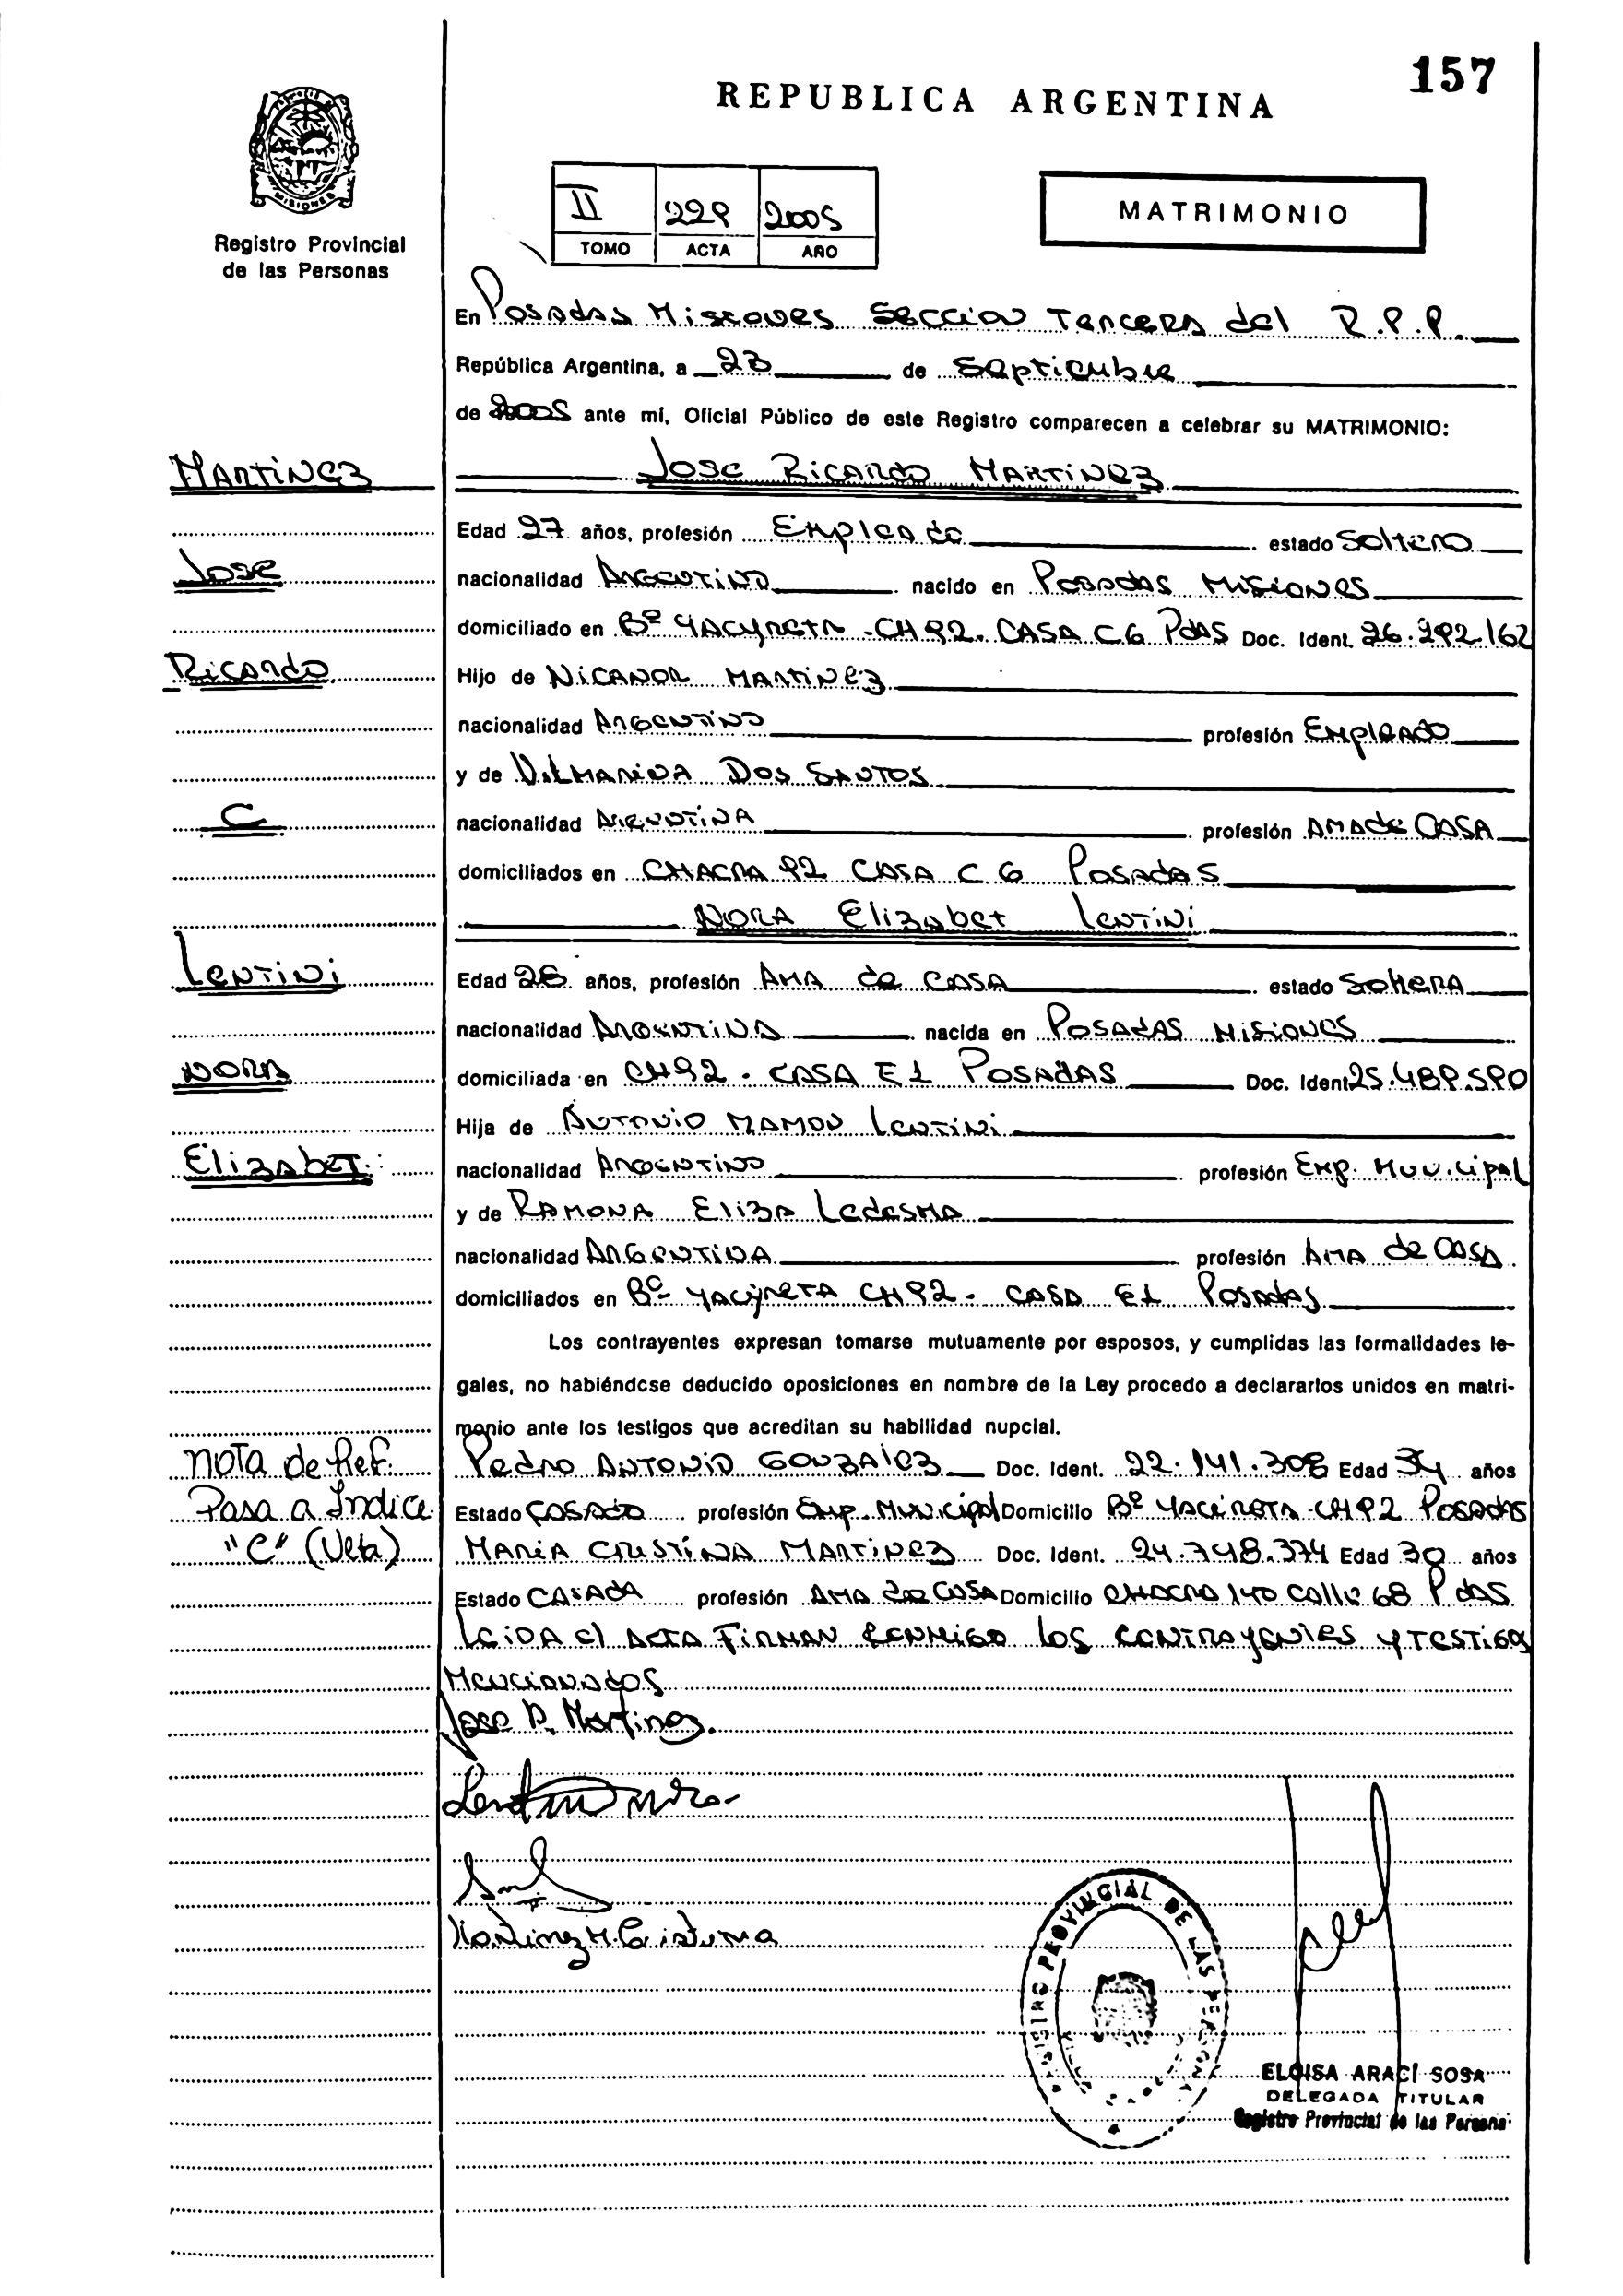 157
REPUBLICA ARGENTINA
MISIONES
Registro Provincial
de las Personas
II 229 2005
TOMO ACTA AÑO
MATRIMONIO
En Posadas Misiones Seccion Tercera del R.P.P.
República Argentina, a 23 de Septiembre
de 2005 ante mí, Oficial Público de este Registro comparecen a celebrar su MATRIMONIO:
Martinez
Jose Ricardo Martinez
Edad 27 años, profesión Empleado estado Soltero
Jose
nacionalidad Argentino nacido en Posadas Misiones
domiciliado en Bº Yacyreta - CH 92. Casa C6 Pdas Doc. Ident. 26.292.162
Ricardo
Hijo de Nicanor Martinez
nacionalidad Argentino profesión Empleado
y de Dos Santos
C
nacionalidad Argentina profesión Ama de Casa
domiciliados en Chacra 92 Casa C 6 Posadas
Nora Elizabet Lentini
Lentini
Edad 28 años, profesión Ama de Casa estado Soltera
nacionalidad Argentina nacida en Posadas Misiones
Nora
domiciliada en CH92. Casa E1 Posadas Doc. Ident. 25.489.590
Hija de Antonio Ramon Lentini
Elizabet
nacionalidad Argentino profesión Emp. Municipal
y de Ramona Eliza Ledesma
nacionalidad Argentina profesión Ama de Casa
domiciliados en Bº Yacyreta CH92. Casa E1 Posadas
Los contrayentes expresan tomarse mutuamente por esposos, y cumplidas las formalidades le-
gales, no habiéndose deducido oposiciones en nombre de la Ley procedo a declararlos unidos en matri-
monio ante los testigos que acreditan su habilidad nupcial.
Nota de Ref.
Pedro Antonio Gonzalez Doc. Ident. 22.141.308 Edad 34 años
Pasa a Indice
Estado Casado profesión Emp. Municipal Domicilio Bº Yacireta - CH92 Posadas
"C" (Vlta)
Maria Cristina Martinez Doc. Ident. 24.748.374 Edad 30 años
Estado Casada profesión Ama de Casa Domicilio Chacra 140 Calle 68 Pdas
Leida el Acta Firman conmigo los contrayentes y testigos
Mencionados
Jose R. Martinez.
Martinez M. Cristina
REGISTRO PROVINCIAL DE LAS PERSONAS
ELOISA ARACÍ SOSA
DELEGADA TITULAR
Registro Provincial de las Personas